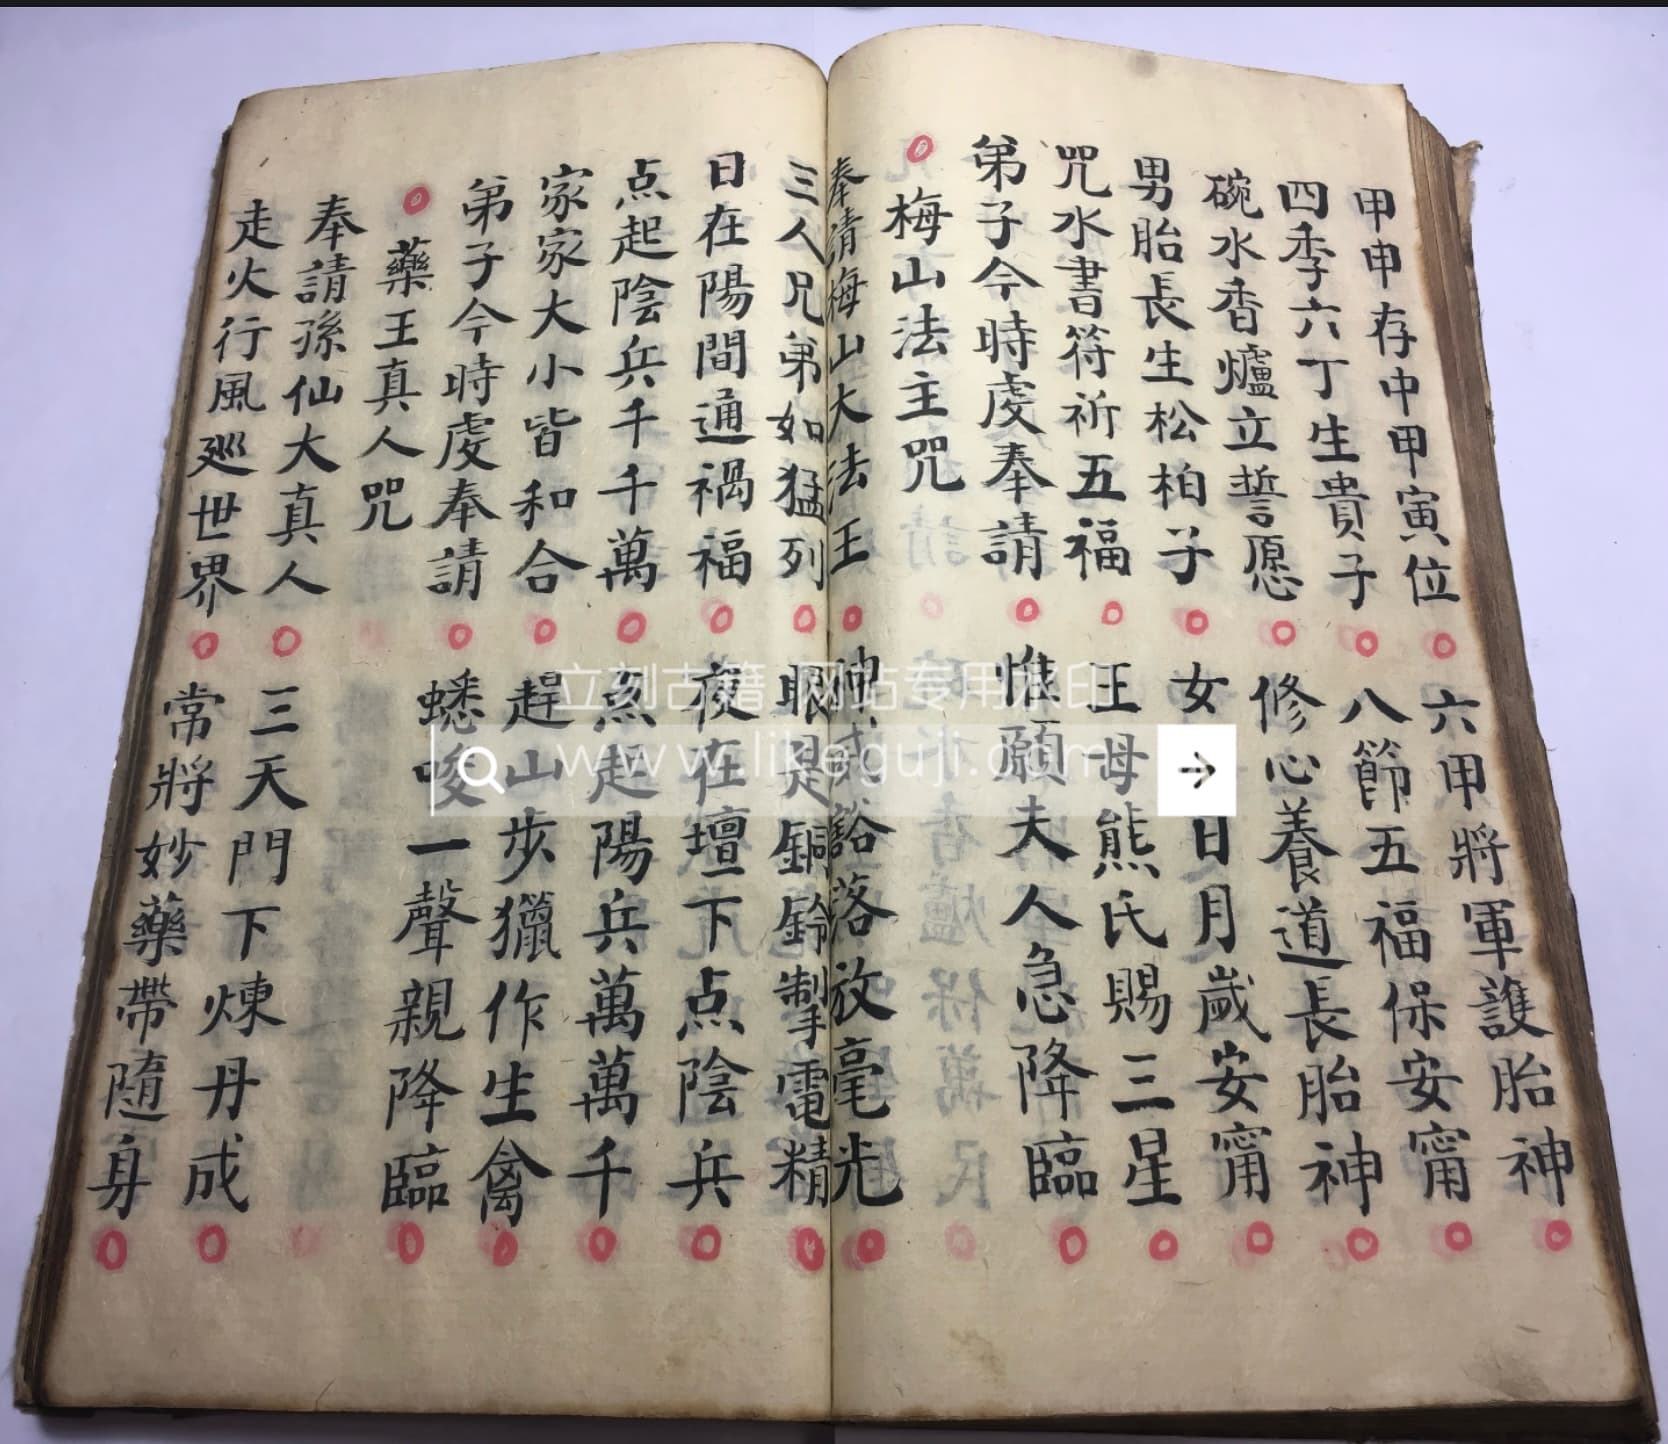 甲申存中甲寅位 六甲將軍護胎神
四季六丁生貴子 八節五福保安甯
碗水香爐立誓愿 修心養道長胎神
男胎長生松柏子 女 日月歲安甯
咒水書符祈五福 王母熊氏賜三星
弟子今時虔奉請 惟願夫人急降臨
梅山法主咒
奉請梅山大法王 落放毫光
三人兄弟如猛列 眼是銅鈴制電精
日在陽間通禍福 夜在壇下点陰兵
点起陰兵千千萬 点起陽兵萬萬千
家家大小皆和合 趕山步獵作生禽
弟子今時虔奉請 蟋唆一聲親降臨
藥王真人咒
奉請孫仙大真人 三天門下煉丹成
走火行風廵世界 常將妙藥帶隨身
立刻古籍 网站专用水印
www.likeguji.com